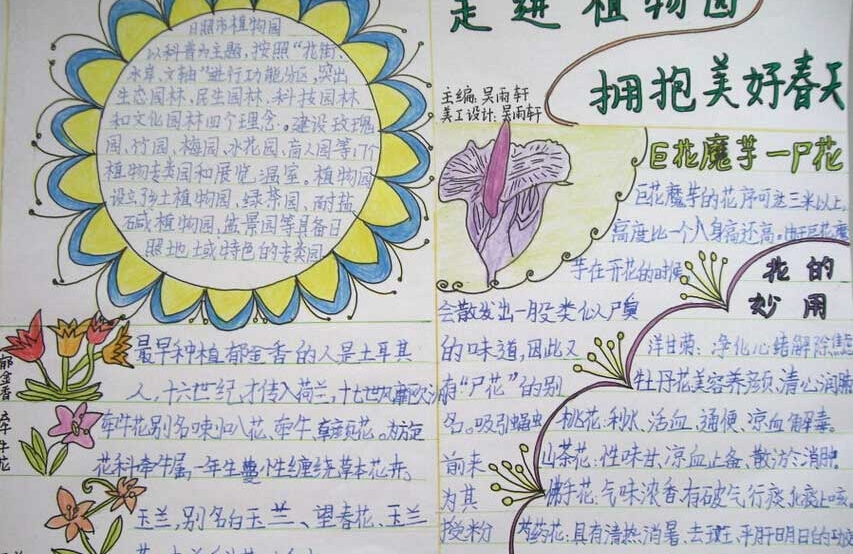 走进植物园
拥抱美好春天
主编:吴雨轩
美工设计:吴雨轩
日照市植物园
以科普为主题,按照“北街、
水岸、文轴”进行功能分区,突出
生态园林、民生园林、科技园林
和文化园林四个理念。建设玫瑰
园、竹园、梅园、水花园、盲人园等17个
植物专类园和展览温室。植物园
设立乡土植物园、绿茶园、耐盐
碱植物园、盆景园等具备日
照地土或特色的专类园
巨花魔芋一尸花
巨花魔芋的花序可达三米以上,
高度比一个人身高还高。由于巨花魔
芋在开花的时候
会散发出一股类似人尸臭
的味道,因此又
有“尸花”的别
名。吸引蝇虫
前来
为其
授粉
花的
妙用
洋甘菊:净化心绪解除焦
牡丹花美容养颜,清心润肺
桃花:利水、活血、通便、凉血解毒。
山茶花:性味甘、凉血止备、散淤消肿。
佛手花:气味浓香,有破气行痰
芍药花:具有清热消暑、去斑、平肝明目的功
郁金香
最早种植郁金香的人是土耳其
人,十六世纪才传入荷兰,十七世
牵牛花
牵牛花别名喇叭花、牵牛、
花科牵牛属,一年生蔓小性缠绕草本花卉。
玉兰,别名白玉兰、望春花、玉兰